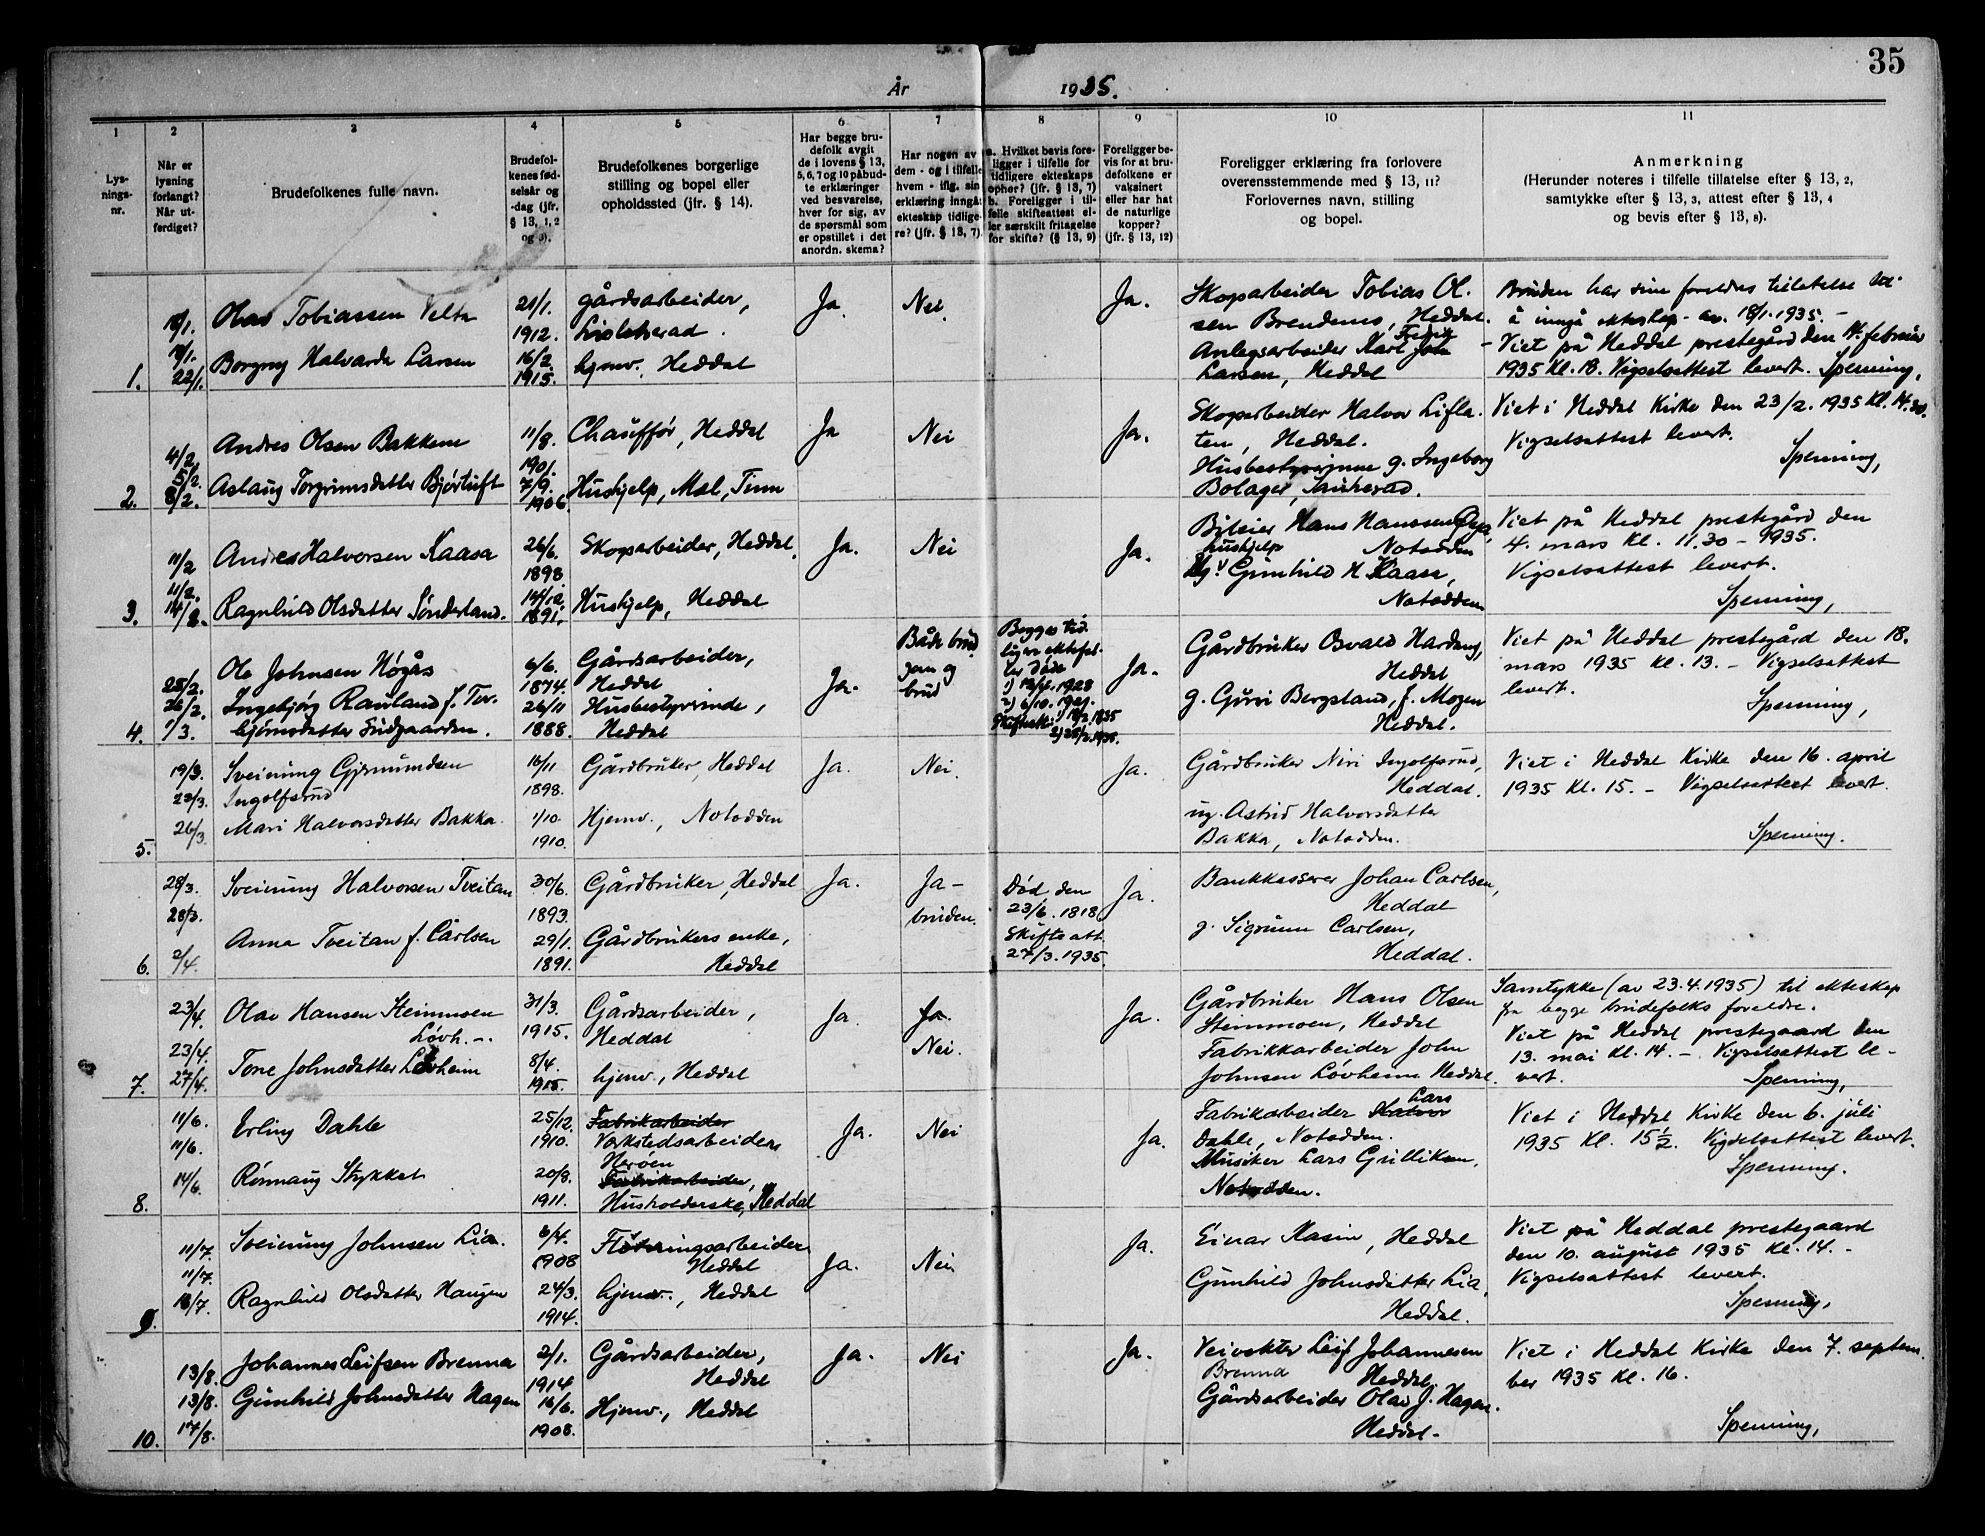 35
År 1935.
1 2 3 4 5 6 7 8 9 10 11
Lys-
nings-
nr.
Når er
lysning
forlangt?
Når ut-
ferdiget?
Brudefolkenes fulle navn.
Brudefol-
kenes fød-
selsår og
-dag (jfr.
§ 13, 1, 2
og 3).
Brudefolkenes borgerlige
stilling og bopel eller
opholdssted (jfr. § 14).
Har begge bru-
defolk avgit
de i lovens § 13,
5, 6, 7 og 10 påbud-
te erklæringer
ved besvarelse,
hver for sig, av
de spørsmål som
er opstillet i det
anordn. skema?
Har nogen av
dem - og i tilfelle
hvem - iflg. sin
erklæring inngåt
ekteskap tidlige-
re? (jfr. § 13, 7).
a. Hvilket bevis fore-
ligger i tilfelle for
tidligere ekteskaps
ophør? (jfr. § 13, 7)
b. Foreligger i til-
felle skifteattest el-
ler særskilt fritagelse
for skifte? (§ 13, 9)
Foreligger be-
vis for at bru-
defolkene er
vaksinert
eller har hat
de naturlige
kopper?
(jfr. § 13, 12)
Foreligger erklæring fra forlovere
overensstemmende med § 13, 11?
Forlovernes navn, stilling
og bopel.
Anmerkning
(Herunder noteres i tilfelle tillatelse efter § 13, 2,
samtykke efter § 13, 3, attest efter § 13, 4
og bevis efter § 13, 8).
1.
22/1.
Olav Tobiassen Velta
Borgny Halvarda Larsen
21/1.
1912.
16/2.
1915.
gårdsarbeider,
Lisleherad.
hjemv., Heddal
Ja.
Nei.
Ja.
Skogarbeider Tobias Ol.
sen Brendemo, Heddal.
Anlegsarbeider Karl
Larsen, Heddal
Bruden har sine foreldres tillatelse til
å inngå ekteskap av 18/1-1935. -
- Viet på Heddal prestegård den 14. februar
1935 kl. 18. Vigselsattest levert. Spenning,
2.
4/2
5/2.
8/2.
Andres Olsen Bakkene
Aslaug Torgrimsdatter Bjørtuft
11/8.
1901.
7/9.
1906.
Chauffør, Heddal
Hushjelp, Mæl, Tinn
Ja
Nei
Ja.
Skogarbeider Halvor Lifla-
ten, Heddal.
Husbestyrinne g. Ingeborg
Bolager, Sauherad.
Viet i Heddal Kirke den 23/2. 1935 Kl. 14.30.
Vigselsattest levert.
Spenning,
3.
11/2
11/2.
14/2.
Andres Halvorsen Kaasa
Ragnhild Olsdatter Sønderland.
26/6.
1898.
14/12.
1891.
Skogarbeider, Heddal.
Hushjelp, Heddal
Ja.
Nei
Ja.
Bileier Hans Hanssen
hushjelp Notodden
Gunhild H. Kaasa,
Notodden
Viet på Heddal prestegård den
4. mars kl. 11.30 - 1935.
Vigselsattest levert.
Spenning,
4.
25/2.
26/2.
1/3.
Ole Johnsen Høgås
Ingebjørg Rauland f. Tor-
bjørnsdatter Sudgaarden.
6/6.
1874.
26/11
1888.
Gårdsarbeider,
Heddal
Husbestyrerinde,
Heddal
Ja.
Både brud-
gom og
brud
Begges tid-
ligere ektefel-
ler døde
1) 12/4. 1928
2) 6/10. 1921.
Skifteatt.: 1) 18/2. 1935
2) 25/2. 1935.
Ja.
Gårdbruker Osvald Hardang,
Heddal
g. Guri Bergsland, f. Mogen
Heddal.
Viet på Heddal prestegård den 18.
mars 1935 kl. 13. - Vigselsattest
levert.
Spenning,
5.
19/3.
23/3.
26/3
Sveinung Gjermundsen
Ingolfsrud
Mari Halvorsdatter Bakka.
16/11
1898.
1/10.
1910.
Gårdbruker, Heddal
Hjemv., Notodden
Ja.
Nei.
Ja.
Gårdbruker Neri Ingolfsrud,
Heddal.
ug. Astrid Halvorsdatter
Bakka, Notodden.
Viet i Heddal Kirke den 16. april
1935 kl. 15. - Vigselsattest levert.
Spenning.
6.
28/3.
28/3.
2/4.
Sveinung Halvorsen Tveitan
Anna Tveitan f. Carlsen
30/6.
1893.
29/1.
1891.
Gårdbruker, Heddal
Gårdbrukers enke,
Heddal
Ja.
Ja -
bruden.
Død den
23/6. 1918
Skifteatt.
27/3. 1935.
Ja.
Bankkasserer Johan Carlsen,
Heddal
g. Sigrunn Carlsen,
Heddal.
7.
23/4.
23/4.
27/4.
Olav Hansen Steinmoen
Løvh. -.
Tone Johnsdatter Løvheim
31/3.
1915.
8/4.
1915.
Gårdsarbeider,
Heddal
hjemv., Heddal
Ja.
Ja.
Nei.
Ja.
Gårdbruker Hans Olsen
Steinmoen, Heddal
Fabrikkarbeider John
Johnsen Lovheim Heddal.
Samtykke (av 23.4.1935) til ekteskap
fra begge brudefolks foreldre.
Viet på Heddal prestegaard den
13. mai kl. 14. -. Vigselsattest le-
vert.
Spenning,
8.
11/6.
11/6.
14/6.
Erling Dahle
Rønnaug Stykket
25/12.
1910.
20/8.
1911.
Fabrikarbeider
Verkstedsarbeider
Herøen
Fabrikarbeider,
Husholderske, Heddal
Ja.
Nei
Ja.
Lars
Fabrikarbeider Halvor
Dahle, Notodden.
Musiker Lars Gulliksen,
Notodden.
Viet i Heddal Kirke den 6. juli
1935 Kl. 15½. Vigselsattest levert.
Spenning.
9.
11/7.
11/7.
16/7.
Sveinung Johnsen Lia.
Ragnhild Olsdatter Haugen
6/4.
1908
24/3.
1914.
Fløtningsarbeider
Heddal
hjemv., Heddal
Ja.
Nei
Ja.
Einar Kasin, Heddal
Gunhild Johnsdatter Lia,
Heddal.
Viet på Heddal prestegaard
den 10. august 1935 kl. 14. -
Vigselsattest levert.
Spenning,
10.
13/8.
13/8.
17/8.
Johannes Leifsen Brenna
Gunhild Johnsdatter Hagen
2/1.
1914
16/6.
1908.
Gårdsarbeider,
Heddal
Hjemv., Heddal
Ja.
Nei
Ja.
Veivokter Leif Johannesen
Brenna Heddal.
Gårdsarbeider Olav J. Hagen.
Heddal.
Viet i Heddal Kirke den 7. septem-
ber 1935 kl. 16.
Spenning,